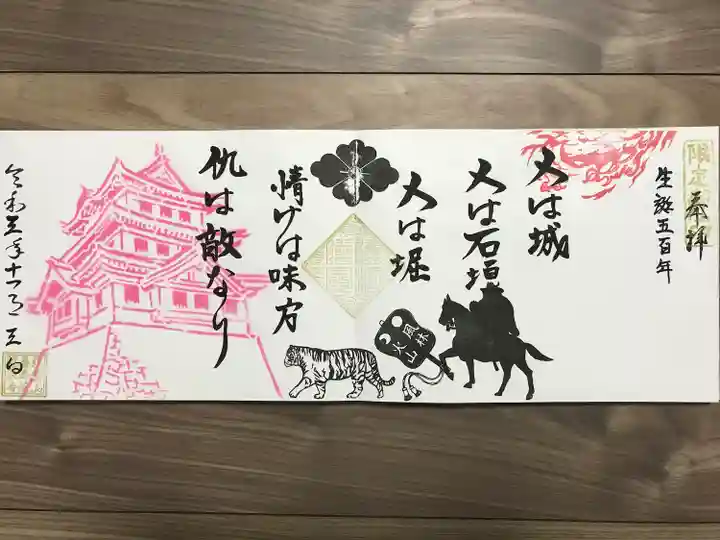 奉拝
限定
生誕五百年
人は城
人は石垣
人は堀
情けは味方
仇は敵なり
風林
火山
令和三年十一月三日